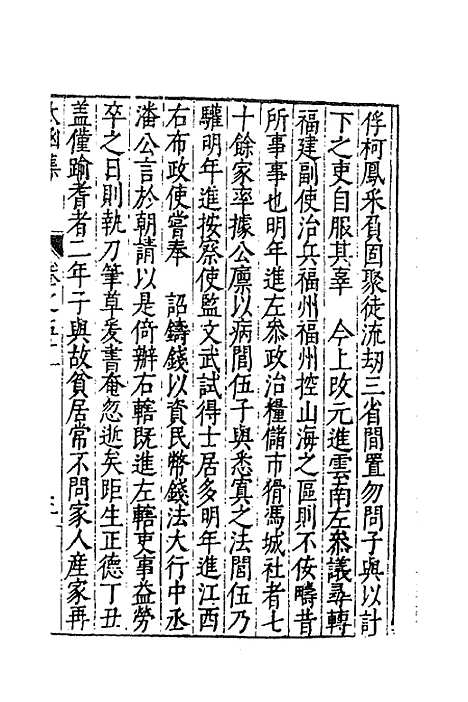 俘柯鳳釆負固聚徒流刼三省間置勿問子與以計
下之吏自服其辜　今上改元進雲南左叅議尋轉
福建副使治兵福州福州控山海之區則不侒疇昔
所事事也明年進左叅政治糧儲市猾馮城社者七
十餘家率據公廪以病閭伍子與悉寘之法閭伍乃
驩明年進按察使監文武試得士居多明年進江西
右布政使嘗奉　詔鑄錢以資民幣錢法大行中丞
潘公言於朝請以是倚辦右轄既進左轄吏事益勞
卒之日則執刀筆草爰書奄忽逝矣距生正德丁丑
盖僅踰耆者二年子與故貧居常不問家人産家再
太函集　卷之五十二